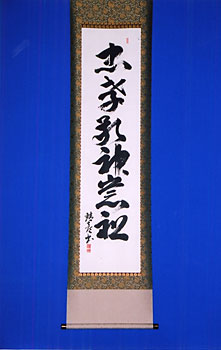 忠孝敬神崇祖